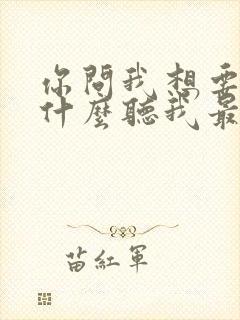 你問我想要
什麼聽我最
苗紅軍